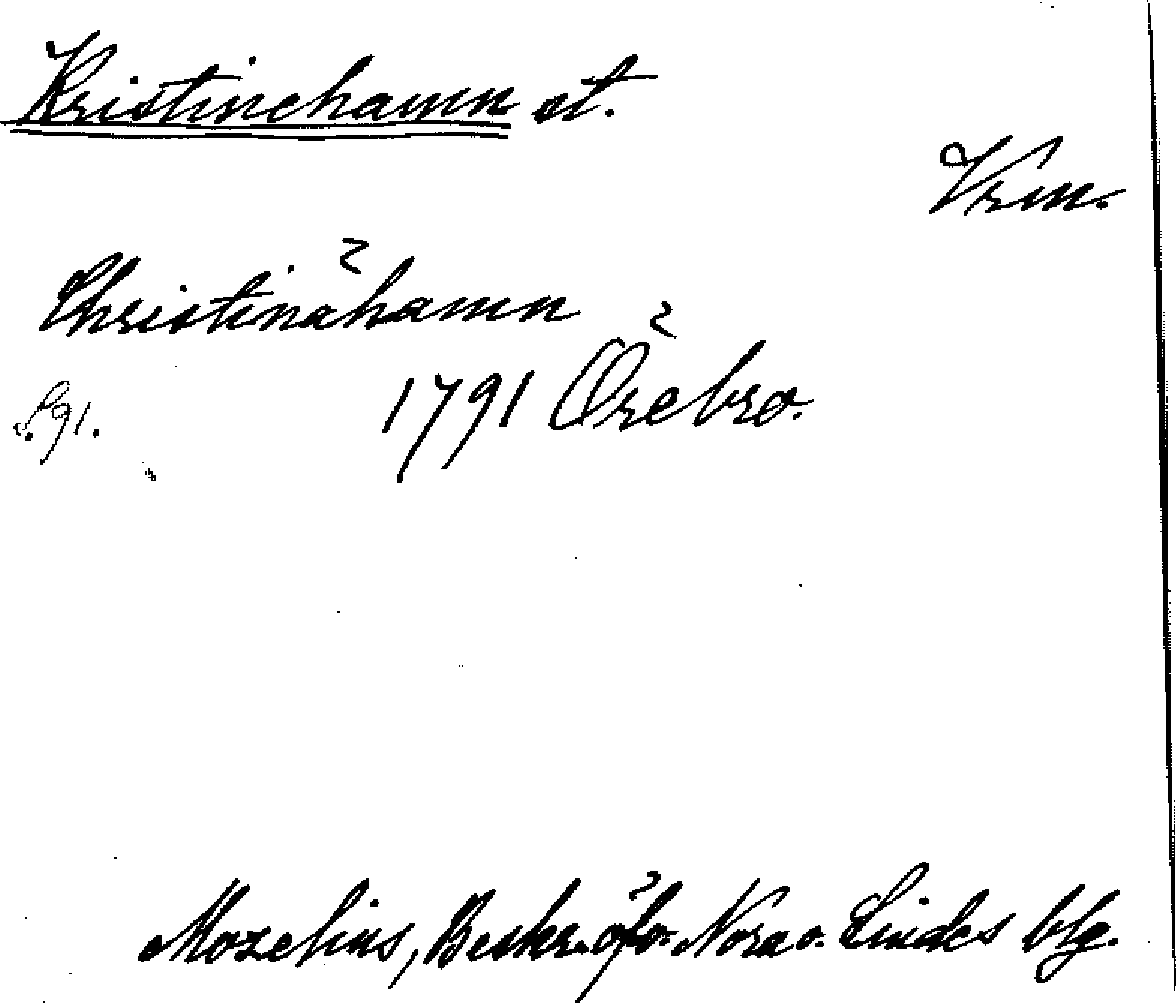 Kristinehamn st.
Vrm.
Christinæhamn
1791 Örebro.
s. 91.
Mozelius, Beskr. öfv. Nora o. Lindes blg.